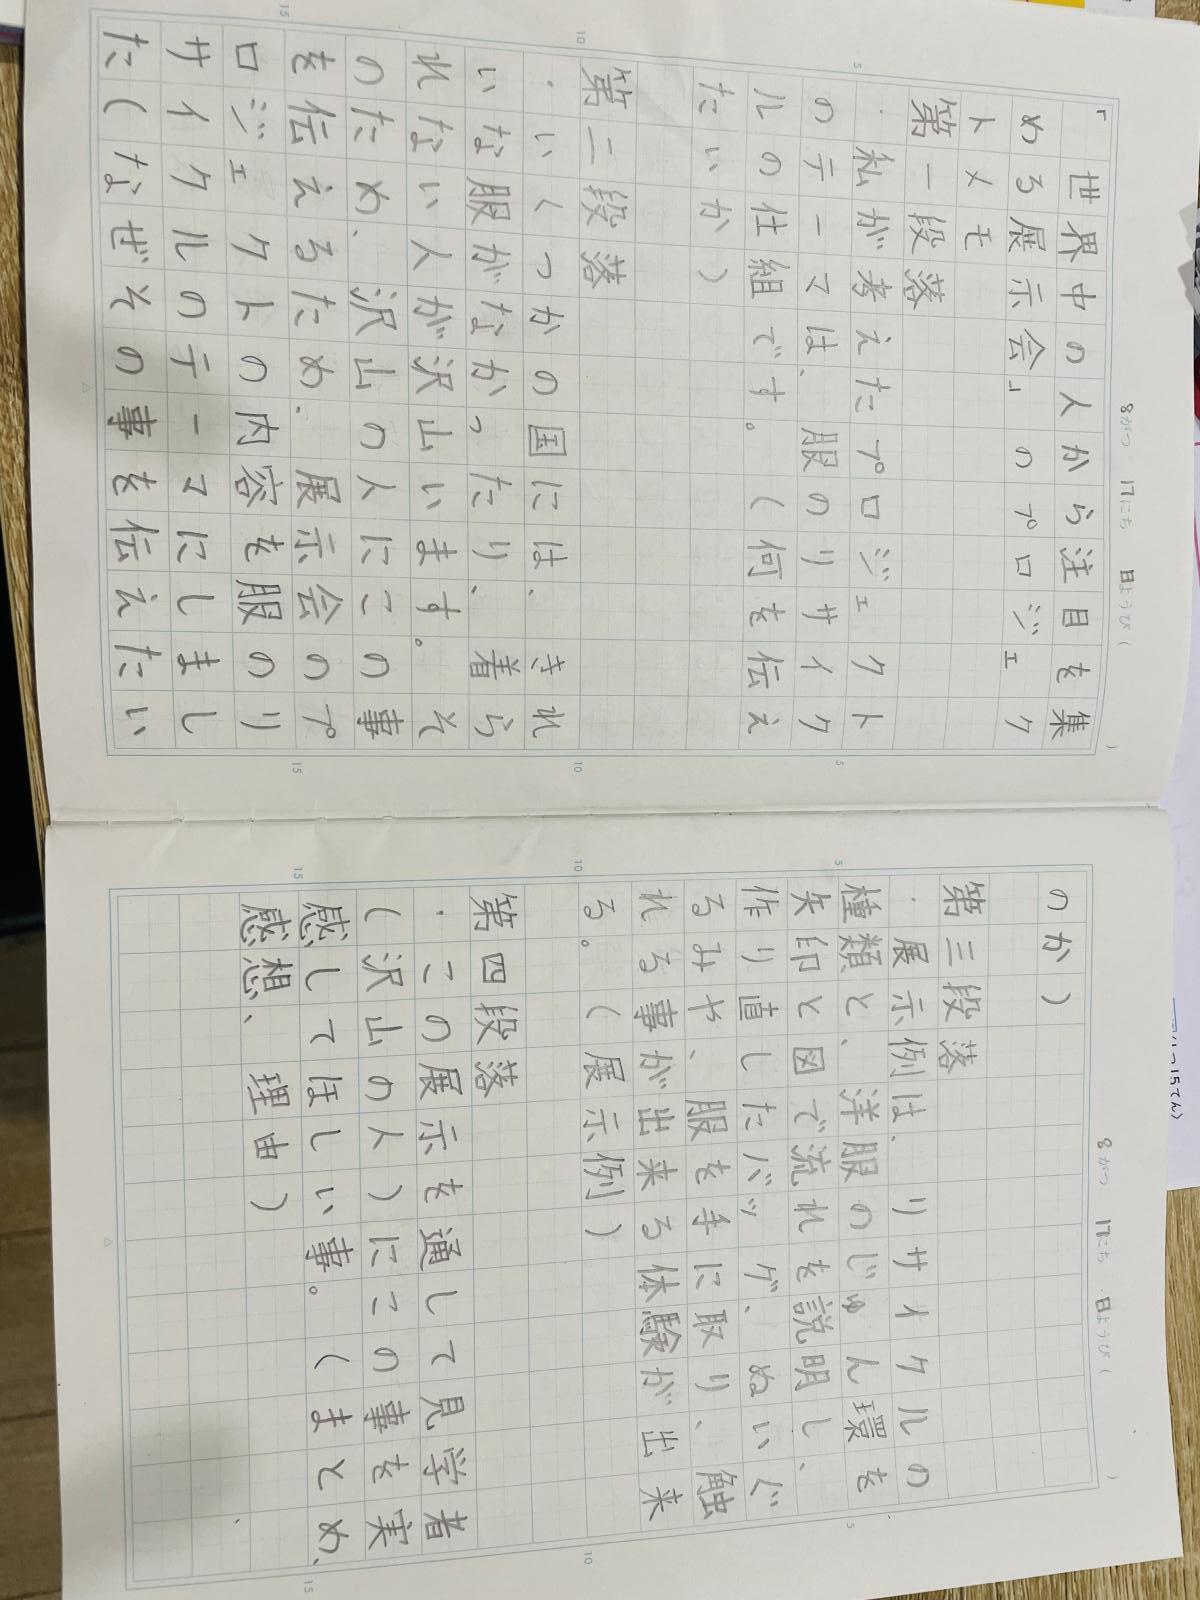 8がつ 17にち 日ようび( )
「世界中の人から注目を集
める展示会」のプロジェク
トメモ
第一段落
・私が考えたプロジェクト
のテーマは、服のリサイク
ルの仕組です。(何を伝え
たいか)
第二段落
・いくつかの国には、きれ
いな服がなかったり、着ら
れない人が沢山います。そ
のため、沢山の人にこの事
を伝えるため、展示会のプ
ロジェクトの内容を服のリ
サイクルのテーマにしまし
た(なぜその事を伝えたい
5
10
15
5
10
15
8がつ 17にち 日ようび( )
のか)
第三段落
・展示例は、リサイクルの
種類と、洋服のじゅん環を
矢印と図で流れを説明し、
作り直したバッグ、ぬいぐ
るみや、服を手に取り、触
れる事が出来る体験が出来
る。(展示例)
第四段落
・この展示を通して見学者
(沢山の人)にこの事を実
感してほしい事。(まとめ、
感想、理由)
5
10
15
5
10
15